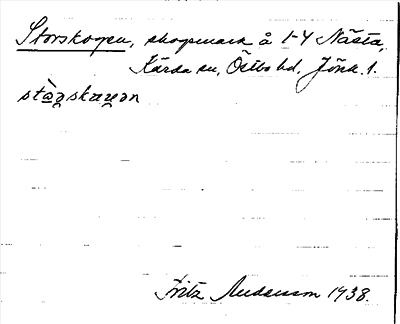 Storskogen, skogsmark å 1-4 Nästa,
Kärda sn, Östbo hd, Jönk. l.
stò̰gskæɷən
Fritz Anderson 1938.